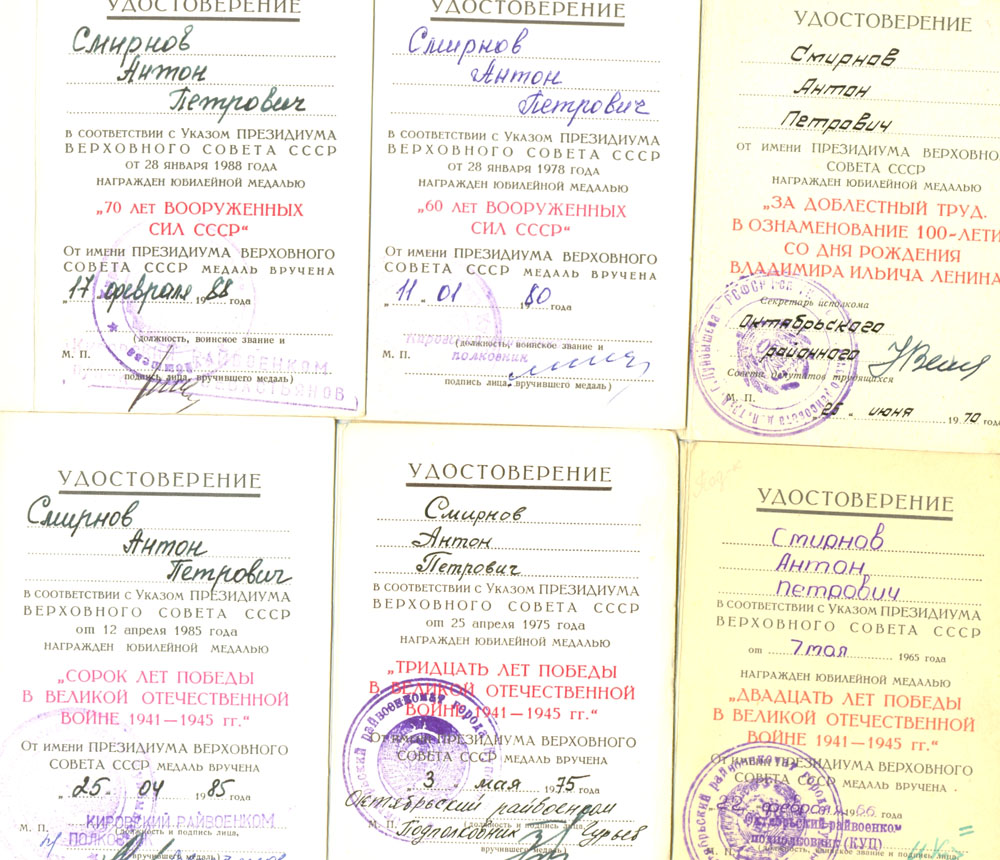 УДОСТОВЕРЕНИЕ
Смирнов
Антон
Петрович
в соответствии с Указом ПРЕЗИДИУМА
ВЕРХОВНОГО СОВЕТА СССР
от 28 января 1988 года
награжден юбилейной медалью
„70 лет ВООРУЖЕННЫХ
СИЛ СССР“
От имени ПРЕЗИДИУМА ВЕРХОВНОГО
СОВЕТА СССР медаль вручена
„17 февраля 1988 года
(должность, воинское звание и
М. П.
РАЙВОЕНКОМ
подпись лица, вручившего медаль)
УДОСТОВЕРЕНИЕ
Смирнов
Антон
Петрович
в соответствии с Указом ПРЕЗИДИУМА
ВЕРХОВНОГО СОВЕТА СССР
от 28 января 1978 года
награжден юбилейной медалью
„60 лет ВООРУЖЕННЫХ
СИЛ СССР“
От имени ПРЕЗИДИУМА ВЕРХОВНОГО
СОВЕТА СССР медаль вручена
„11 „ 01 1980 года
(должность, воинское звание и
М. П. полковник
подпись лица, вручившего медаль)
УДОСТОВЕРЕНИЕ
Смирнов
Антон
Петрович
от имени ПРЕЗИДИУМА ВЕРХОВНО
СОВЕТА СССР
награжден юбилейной медалью
„ЗА ДОБЛЕСТНЫЙ ТРУД.
В ОЗНАМЕНОВАНИЕ 100-ЛЕТИ
СО ДНЯ РОЖДЕНИЯ
ВЛАДИМИРА ИЛЬИЧА ЛЕНИНА
Секретарь исполкома
Октябрьского
районного
Совета депутатов трудящихся
М. П.
„25 „ июня 1970 года
УДОСТОВЕРЕНИЕ
Смирнов
Антон
Петрович
в соответствии с Указом ПРЕЗИДИУМА
ВЕРХОВНОГО СОВЕТА СССР
от 12 апреля 1985 года
награжден юбилейной медалью
„СОРОК ЛЕТ ПОБЕДЫ
В ВЕЛИКОЙ ОТЕЧЕСТВЕННОЙ
ВОЙНЕ 1941—1945 гг.“
От имени ПРЕЗИДИУМА ВЕРХОВНОГО
СОВЕТА СССР медаль вручена
„25. 04 1985 года
КИРОВСКИЙ РАЙВОЕНКОМ
М. П. (должность и подпись лица,
ПОЛКОВНИК
вручившего медаль)
УДОСТОВЕРЕНИЕ
Смирнов
Антон
Петрович
в соответствии с Указом ПРЕЗИДИУМА
ВЕРХОВНОГО СОВЕТА СССР
от 25 апреля 1975 года
награжден юбилейной медалью
„ТРИДЦАТЬ ЛЕТ ПОБЕДЫ
В ВЕЛИКОЙ ОТЕЧЕСТВЕННОЙ
ВОЙНЕ 1941—1945 гг.“
От имени ПРЕЗИДИУМА ВЕРХОВНОГО
СОВЕТА СССР медаль вручена
„ 3 „ мая 1975 года
Октябрьский райвоенком
М. П. Подполковник Гурьев
(должность и подпись лица,
вручившего медаль)
УДОСТОВЕРЕНИЕ
Смирнов
Антон
Петрович
в соответствии с Указом ПРЕЗИДИУМА
ВЕРХОВНОГО СОВЕТА СССР
от 7 мая 1965 года
награжден юбилейной медалью
„ДВАДЦАТЬ ЛЕТ ПОБЕДЫ
В ВЕЛИКОЙ ОТЕЧЕСТВЕННОЙ
ВОЙНЕ 1941—1945 гг.“
От имени ПРЕЗИДИУМА ВЕРХОВНОГО
СОВЕТА СССР медаль вручена
22 февраля 1966 года
Октябрьский райвоенком
М. П. подполковник (КУЦ)